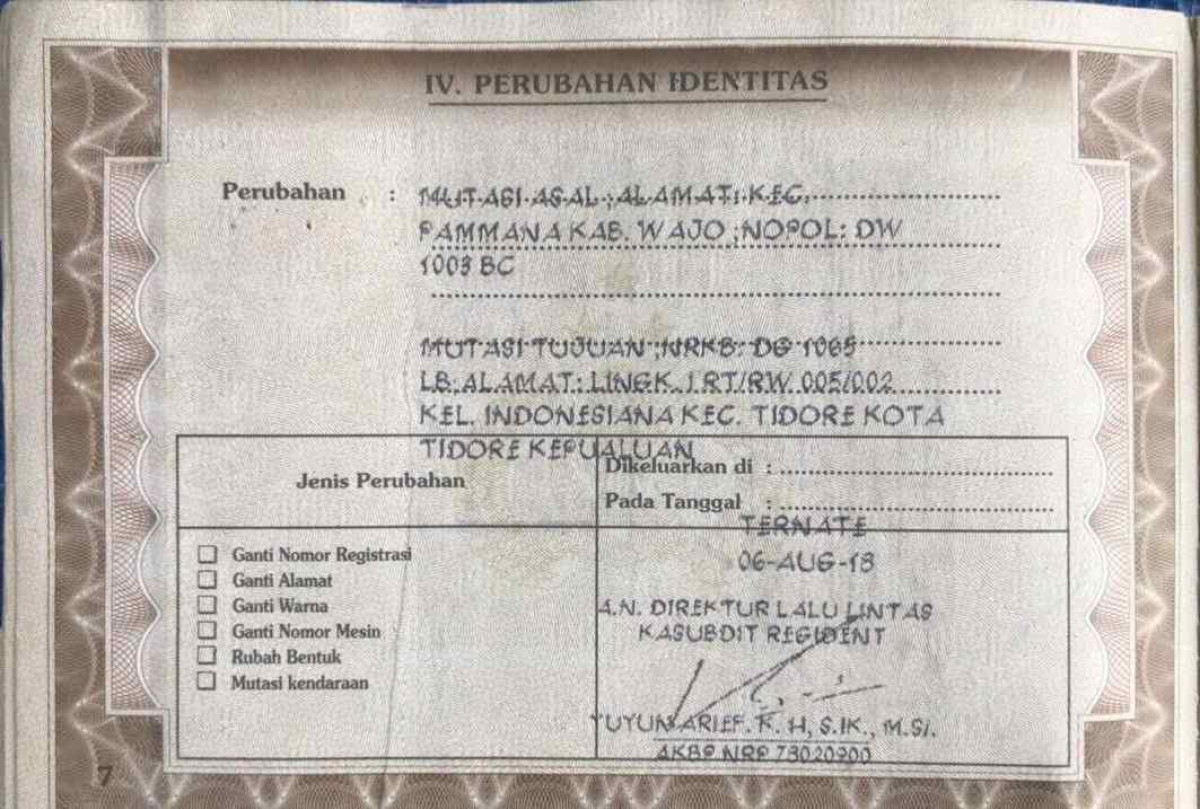 IV. PERUBAHAN IDENTITAS
Perubahan : MUTASI ASAL ;ALAMAT: KEC.
PAMMANA KAB. WAJO ;NOPOL: DW
1003 BC
MUTASI TUJUAN ;NRKB: DG 1065
LB;ALAMAT: LINGK. I RT/RW 005/002
KEL. INDONESIANA KEC. TIDORE KOTA
TIDORE KEPUALUAN
Jenis Perubahan
Dikeluarkan di :
Pada Tanggal :
TERNATE
06-AUG-18
Ganti Nomor Registrasi
Ganti Alamat
Ganti Warna
Ganti Nomor Mesin
Rubah Bentuk
Mutasi kendaraan
A.N. DIREKTUR LALU LINTAS
KASUBDIT REGIDENT
YUYUN ARIEF. K. H, S.IK., M.SI.
AKBP NRP 73020900
7